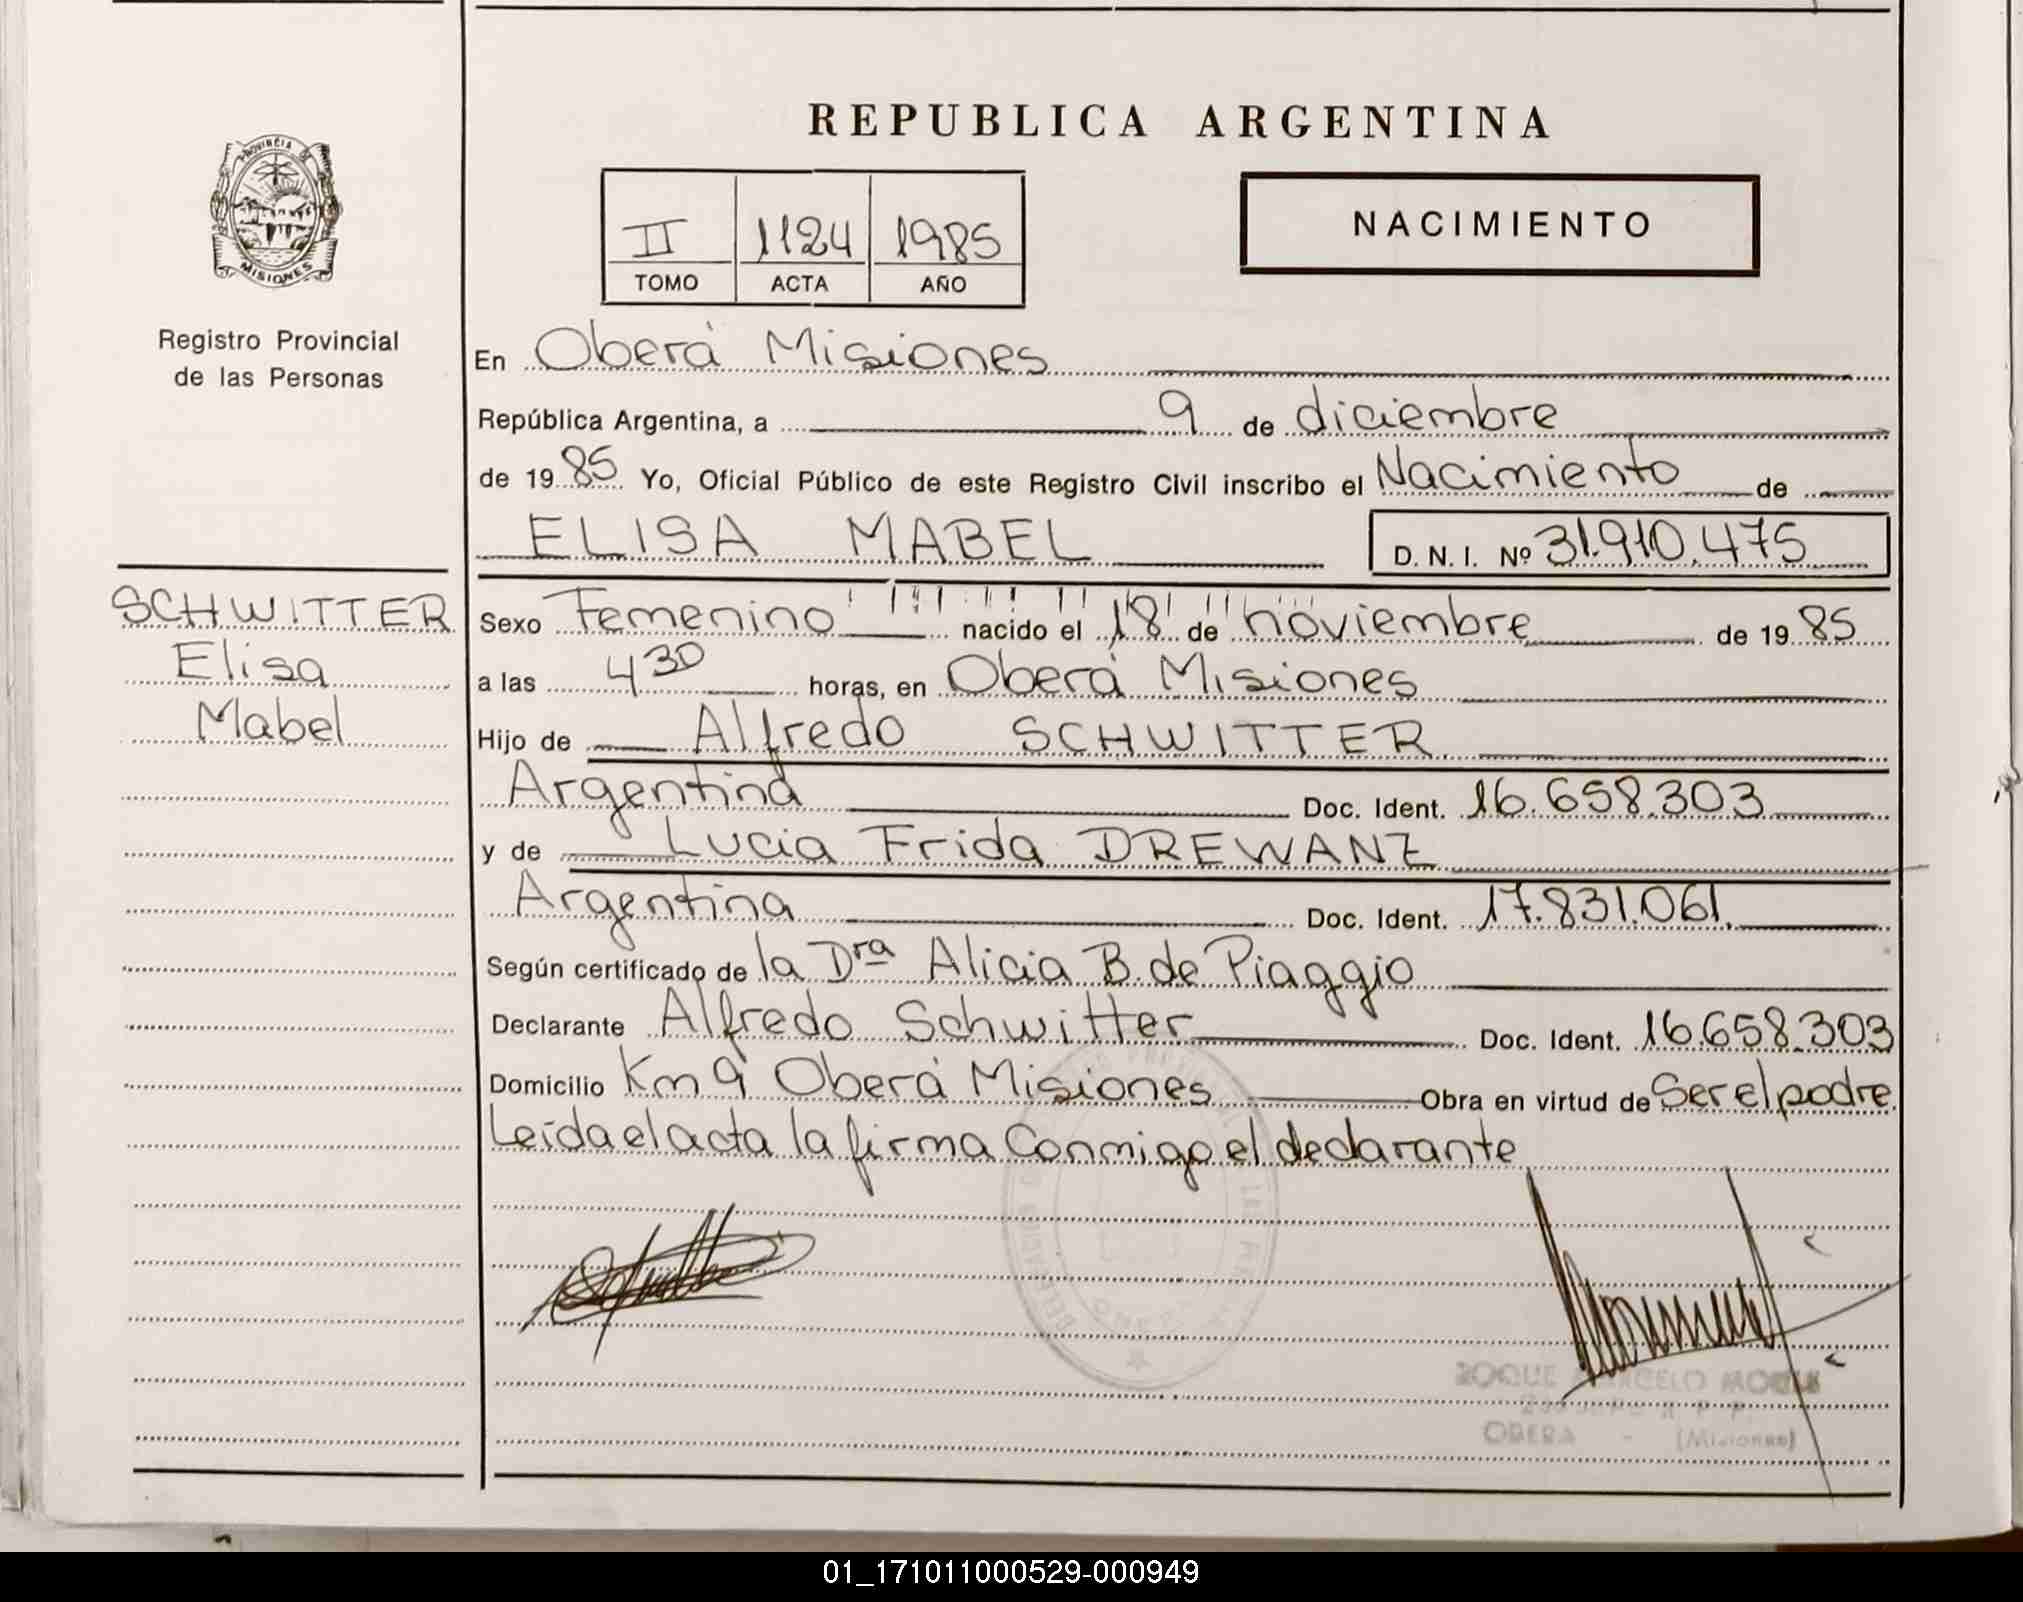 REPUBLICA ARGENTINA
PROVINCIA DE
MISIONES
Registro Provincial
de las Personas
II 1124 1985
TOMO ACTA AÑO
NACIMIENTO
En Oberá Misiones
República Argentina, a 9 de diciembre
de 1985 Yo, Oficial Público de este Registro Civil inscribo el Nacimiento de
ELISA MABEL D. N. I. Nº 31.910.475
SCHWITTER
Elisa
Mabel
Sexo Femenino nacido el 18 de noviembre de 1985
a las 4 30 horas, en Oberá Misiones
Hijo de Alfredo SCHWITTER
Argentina Doc. Ident. 16.658.303
y de Lucia Frida DREWANZ
Argentina Doc. Ident. 17.831.061.
Según certificado de la Dra Alicia B. de Piaggio
Declarante Alfredo Schwitter Doc. Ident. 16.658.303
Domicilio Km 9 Oberá Misiones Obra en virtud de Ser el padre
Leída el acta la firma Conmigo el declarante
ROQUE MARCELO
OBERA - (Misiones)
01_171011000529-000949